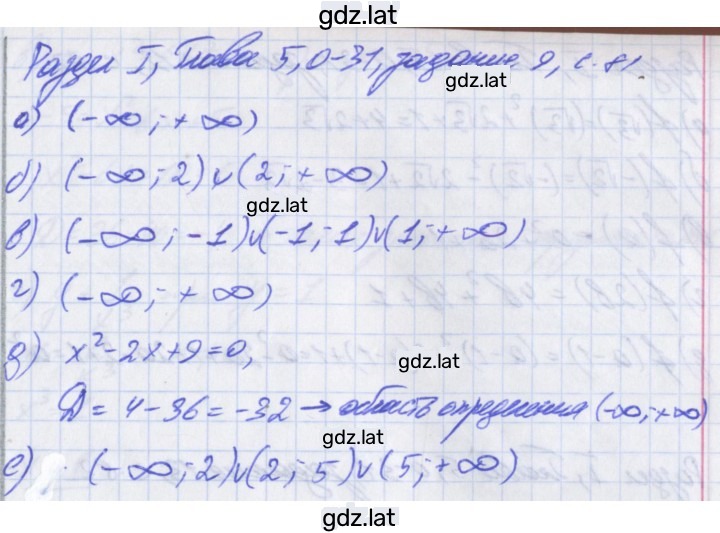 gdz.lat
Раздел I, Глава 5, 0-31, задание 9, с. 81
gdz.lat
а) (-∞; +∞)
б) (-∞; 2) ∪ (2; +∞)
gdz.lat
в) (-∞; -1)∪(-1; 1)∪(1; +∞)
г) (-∞; +∞)
д) x²-2x+9=0,
gdz.lat
D = 4-36 = -32 → область определения (-∞; +∞)
gdz.lat
е) (-∞; 2)∪(2; 5)∪(5; +∞)
gdz.lat